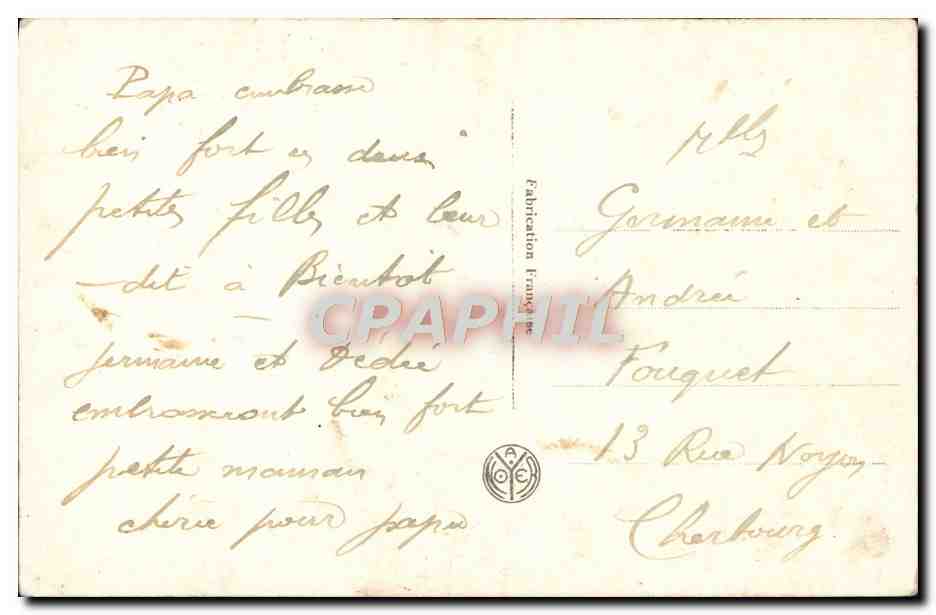 Papa embrasse
bien fort ces deux
petites filles et leur
dit à Bientôt
germaine et Dédée
embrasseront bien fort
petite maman
chérie pour papa
Fabrication Française
CPAPHIL
Mlles
Germaine et
Andrée
Fouquet
13 Rue Noyon
Cherbourg